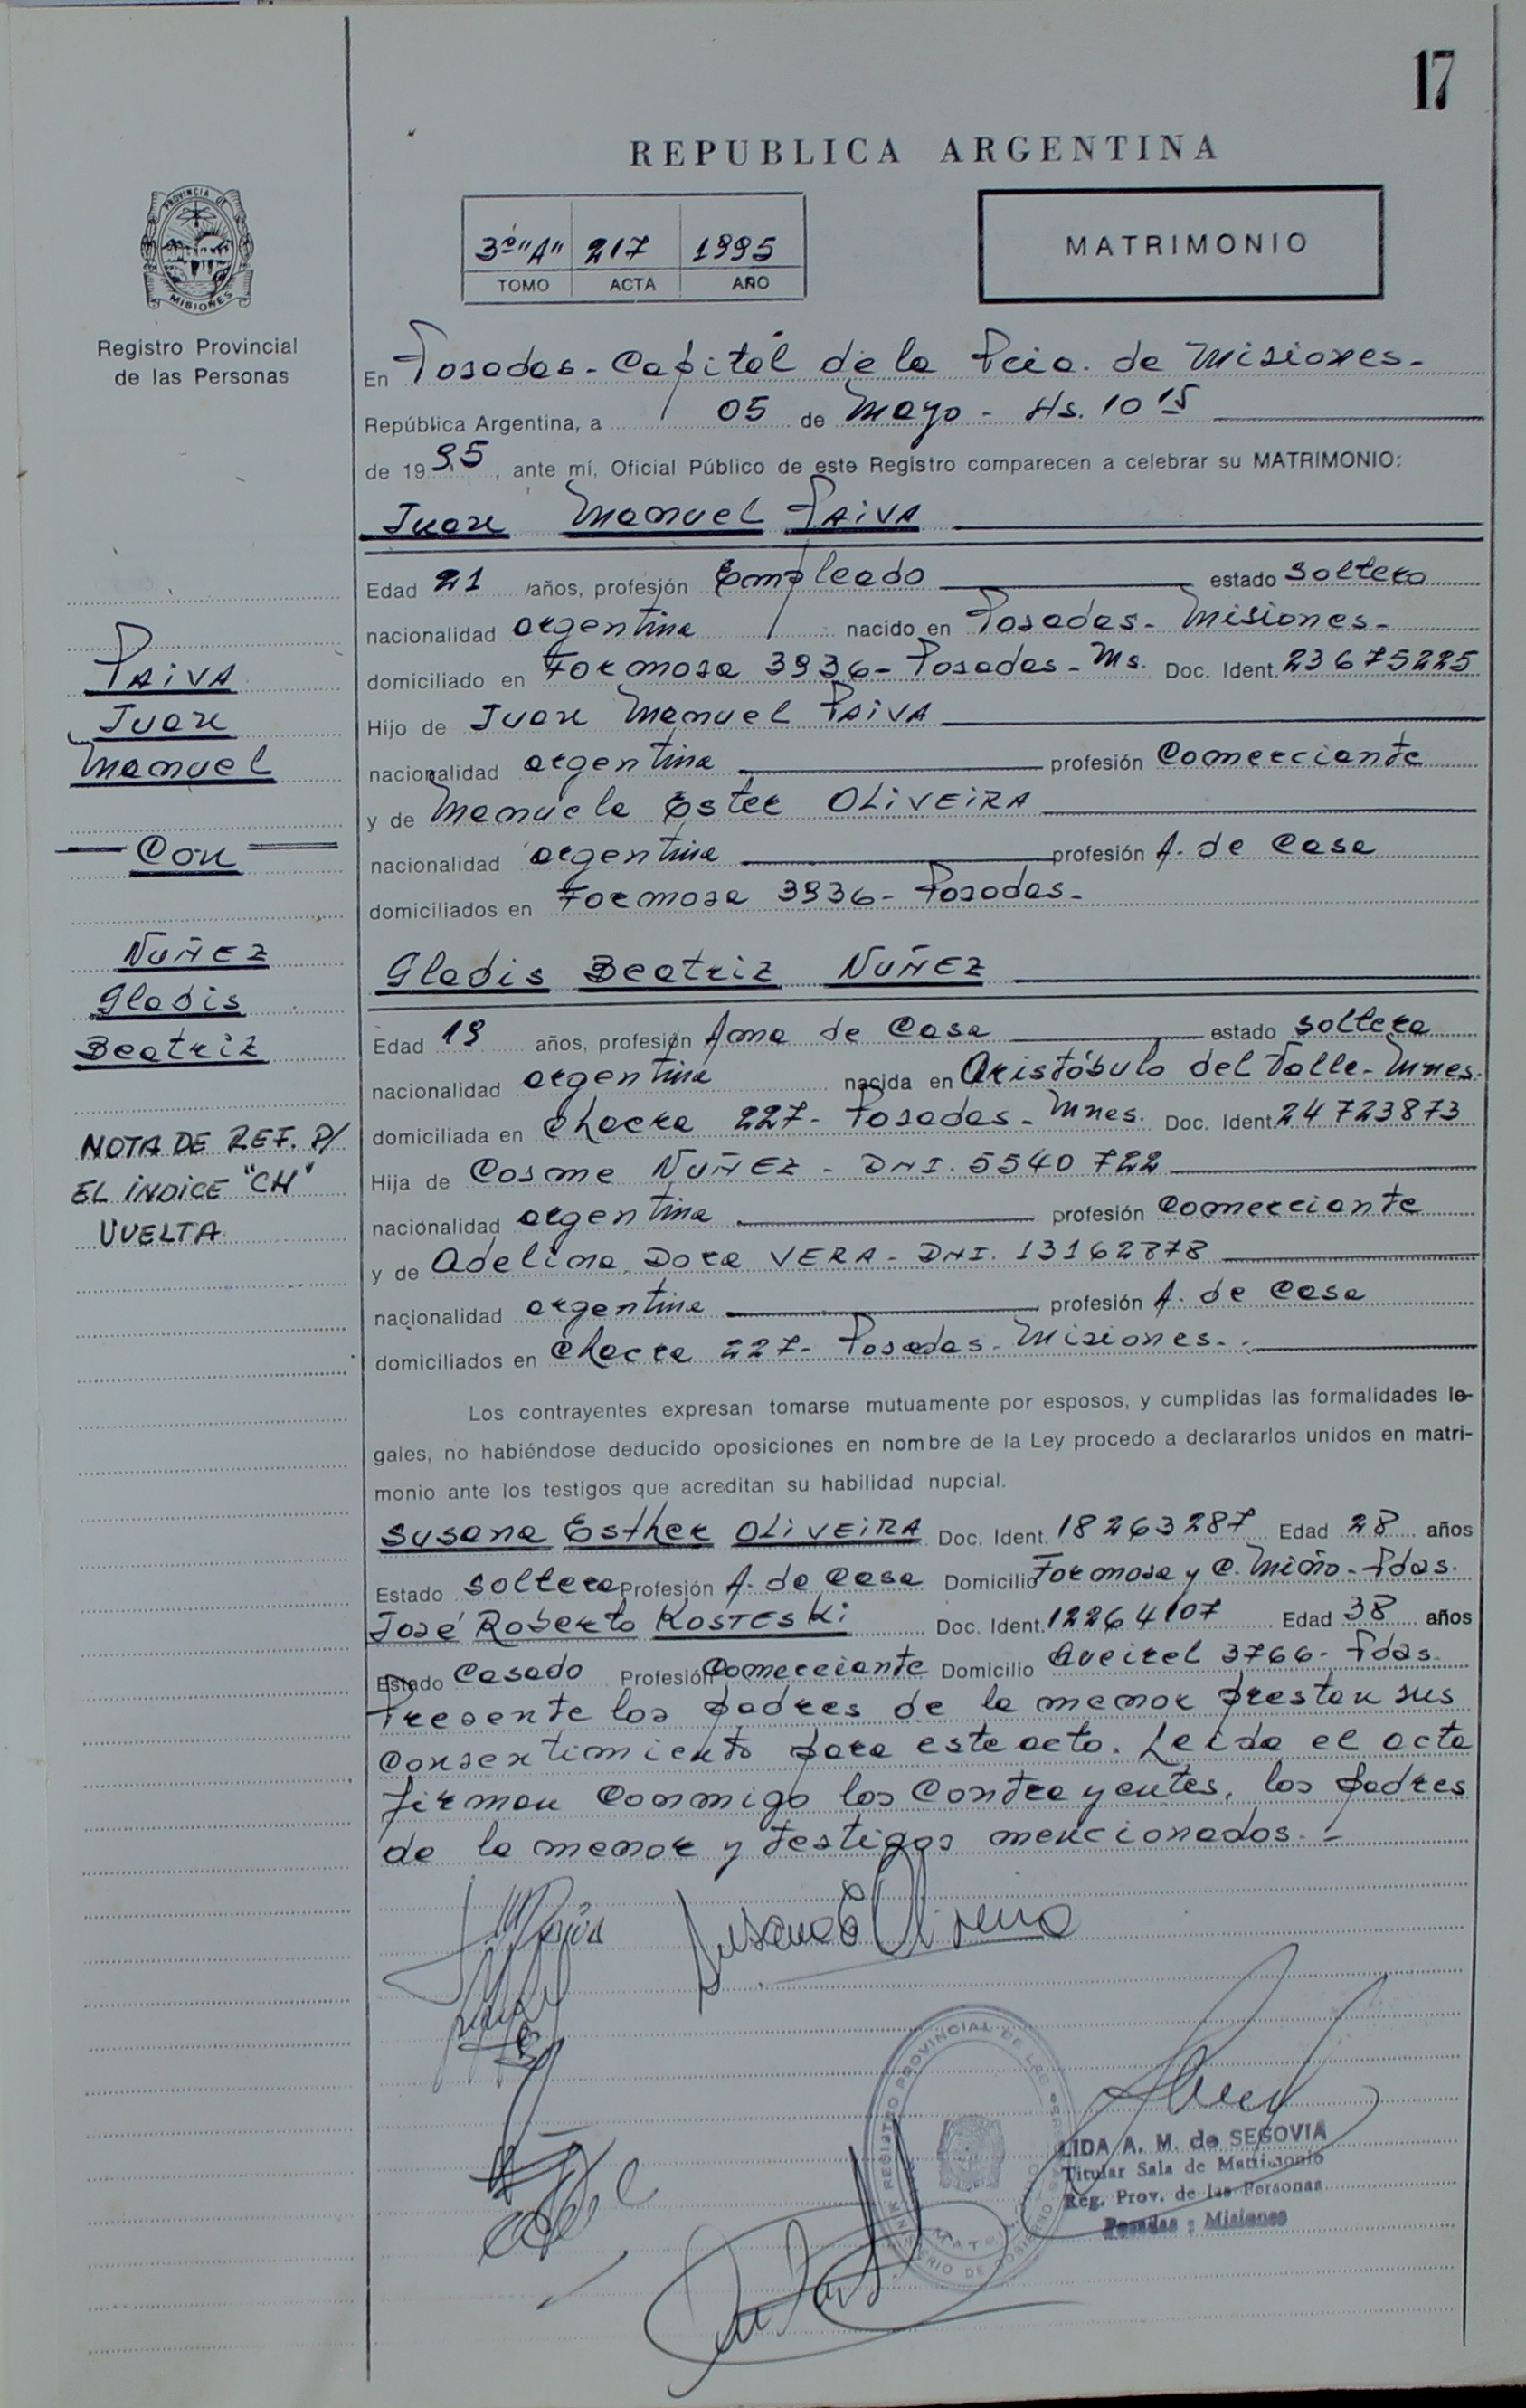 17
REPUBLICA ARGENTINA
3º "A" 217 1995
TOMO ACTA AÑO
MATRIMONIO
PROVINCIA DE
MISIONES
Registro Provincial
de las Personas
En Posadas - Capital de la Pcia. de Misiones -
República Argentina, a 05 de Mayo - Hs. 10 15
de 1995, ante mí, Oficial Público de este Registro comparecen a celebrar su MATRIMONIO:
Juan Manuel PAIVA
Edad 21 años, profesión Empleado estado soltero
nacionalidad argentina nacido en Posadas - Misiones -
domiciliado en Formosa 3936 - Posadas - Ms. Doc. Ident. 23675225
Hijo de Juan Manuel PAIVA
nacionalidad argentina profesión Comerciante
y de Manuela Ester OLIVEIRA
nacionalidad argentina profesión A. de Casa
domiciliados en Formosa 3936 - Posadas -
Gladis Beatriz NUÑEZ
Edad 19 años, profesión Ama de Casa estado soltera
nacionalidad argentina nacida en Aristóbulo del Valle - Mnes.
domiciliada en Chacra 227 - Posadas - Mnes. Doc. Ident. 24723873
Hija de Cosme NUÑEZ - DNI. 5540722
nacionalidad argentina profesión Comerciante
y de Adelina Dora VERA - DNI. 13162878
nacionalidad argentina profesión A. de Casa
domiciliados en Chacra 227 - Posadas - Misiones -
Los contrayentes expresan tomarse mutuamente por esposos, y cumplidas las formalidades le-
gales, no habiéndose deducido oposiciones en nombre de la Ley procedo a declararlos unidos en matri-
monio ante los testigos que acreditan su habilidad nupcial.
Susana Esther OLIVEIRA Doc. Ident. 18263287 Edad 28 años
Estado soltera Profesión A. de Casa Domicilio Formosa y C. Miño - Pdas.
José Roberto KOSTESKI Doc. Ident. 12264107 Edad 38 años
Estado Casado Profesión Comerciante Domicilio 3766 - Pdas.
Presente los padres de la menor prestan sus
consentimiento para este acto. Leída el acta
firman conmigo los contrayentes, los padres
de la menor y testigos mencionados. -
PAIVA
Juan
Manuel
Con
NUÑEZ
Gladis
Beatriz
NOTA DE REF. P/
EL INDICE "CH"
VUELTA
Susana E Oliveira
REGISTRO PROVINCIAL DE LAS PERSONAS
MINISTERIO DE GOBIERNO
LIDA A. M. de SEGOVIA
Titular Sala de Matrimonio
Reg. Prov. de las Personas
Posadas - Misiones